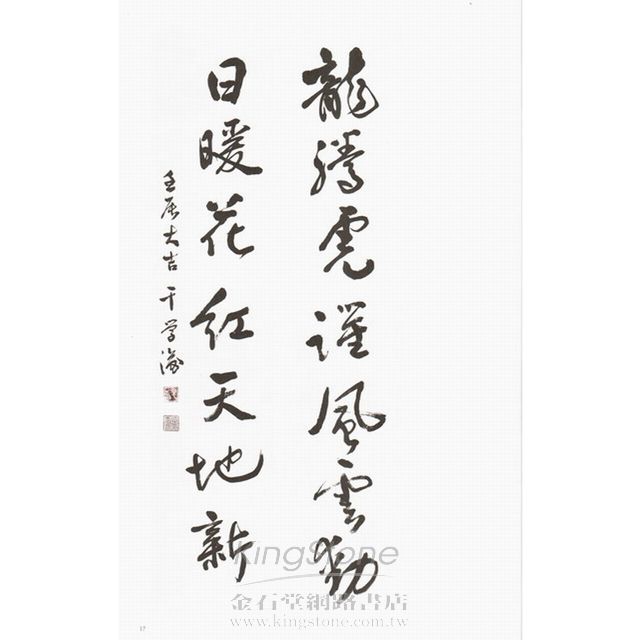 龍騰虎躍風雲動
日暖花紅天地新
壬辰大吉 于学海
KingStone
金石堂網路書店
www.kingstone.com.tw
17